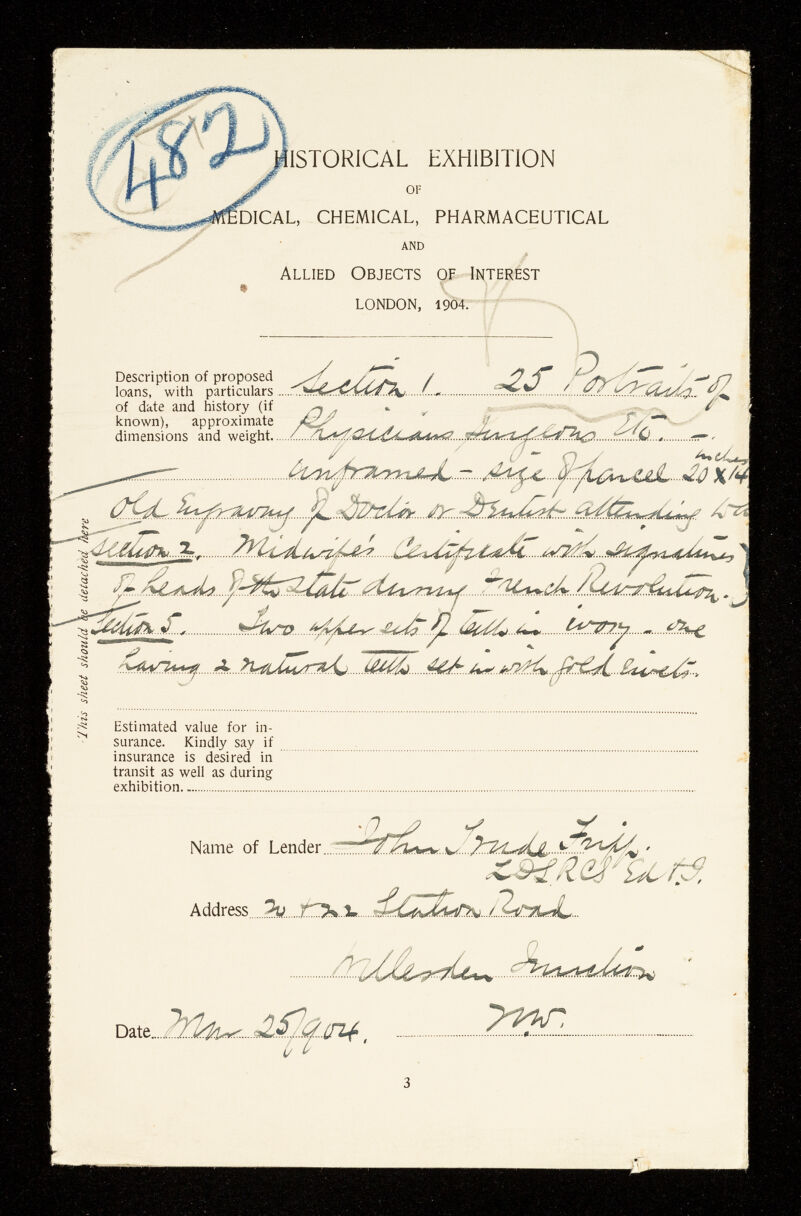 482
HISTORICAL EXHIBITION
OF
MEDICAL, CHEMICAL, PHARMACEUTICAL
AND
ALLIED OBJECTS OF INTEREST
LONDON, 1904.
Description of proposed
loans, with particulars
of date and history (if
known), approximate
dimensions and weight.
Section 1. 25 Portraits of
Physicians Surgeons Etc. –
unframed – size of parcel 20 x 14 inches
Old Engraving of Doctor or Dentist attending to a
Section 2. Midwife's Certificate with signatures
of heads of the State during French Revolution.
Section 5. Two upper sets of teeth in ivory – one
having 2 natural teeth set in with gold rivets.
This sheet should be detached here
Estimated value for in-
surance. Kindly say if
insurance is desired in
transit as well as during
exhibition.
Name of Lender John Fripp.
LDSRCS Ed & I.
Address 20 & 22 Station Road
Willesden Junction
N.W.
Date Mar 25/904.
3